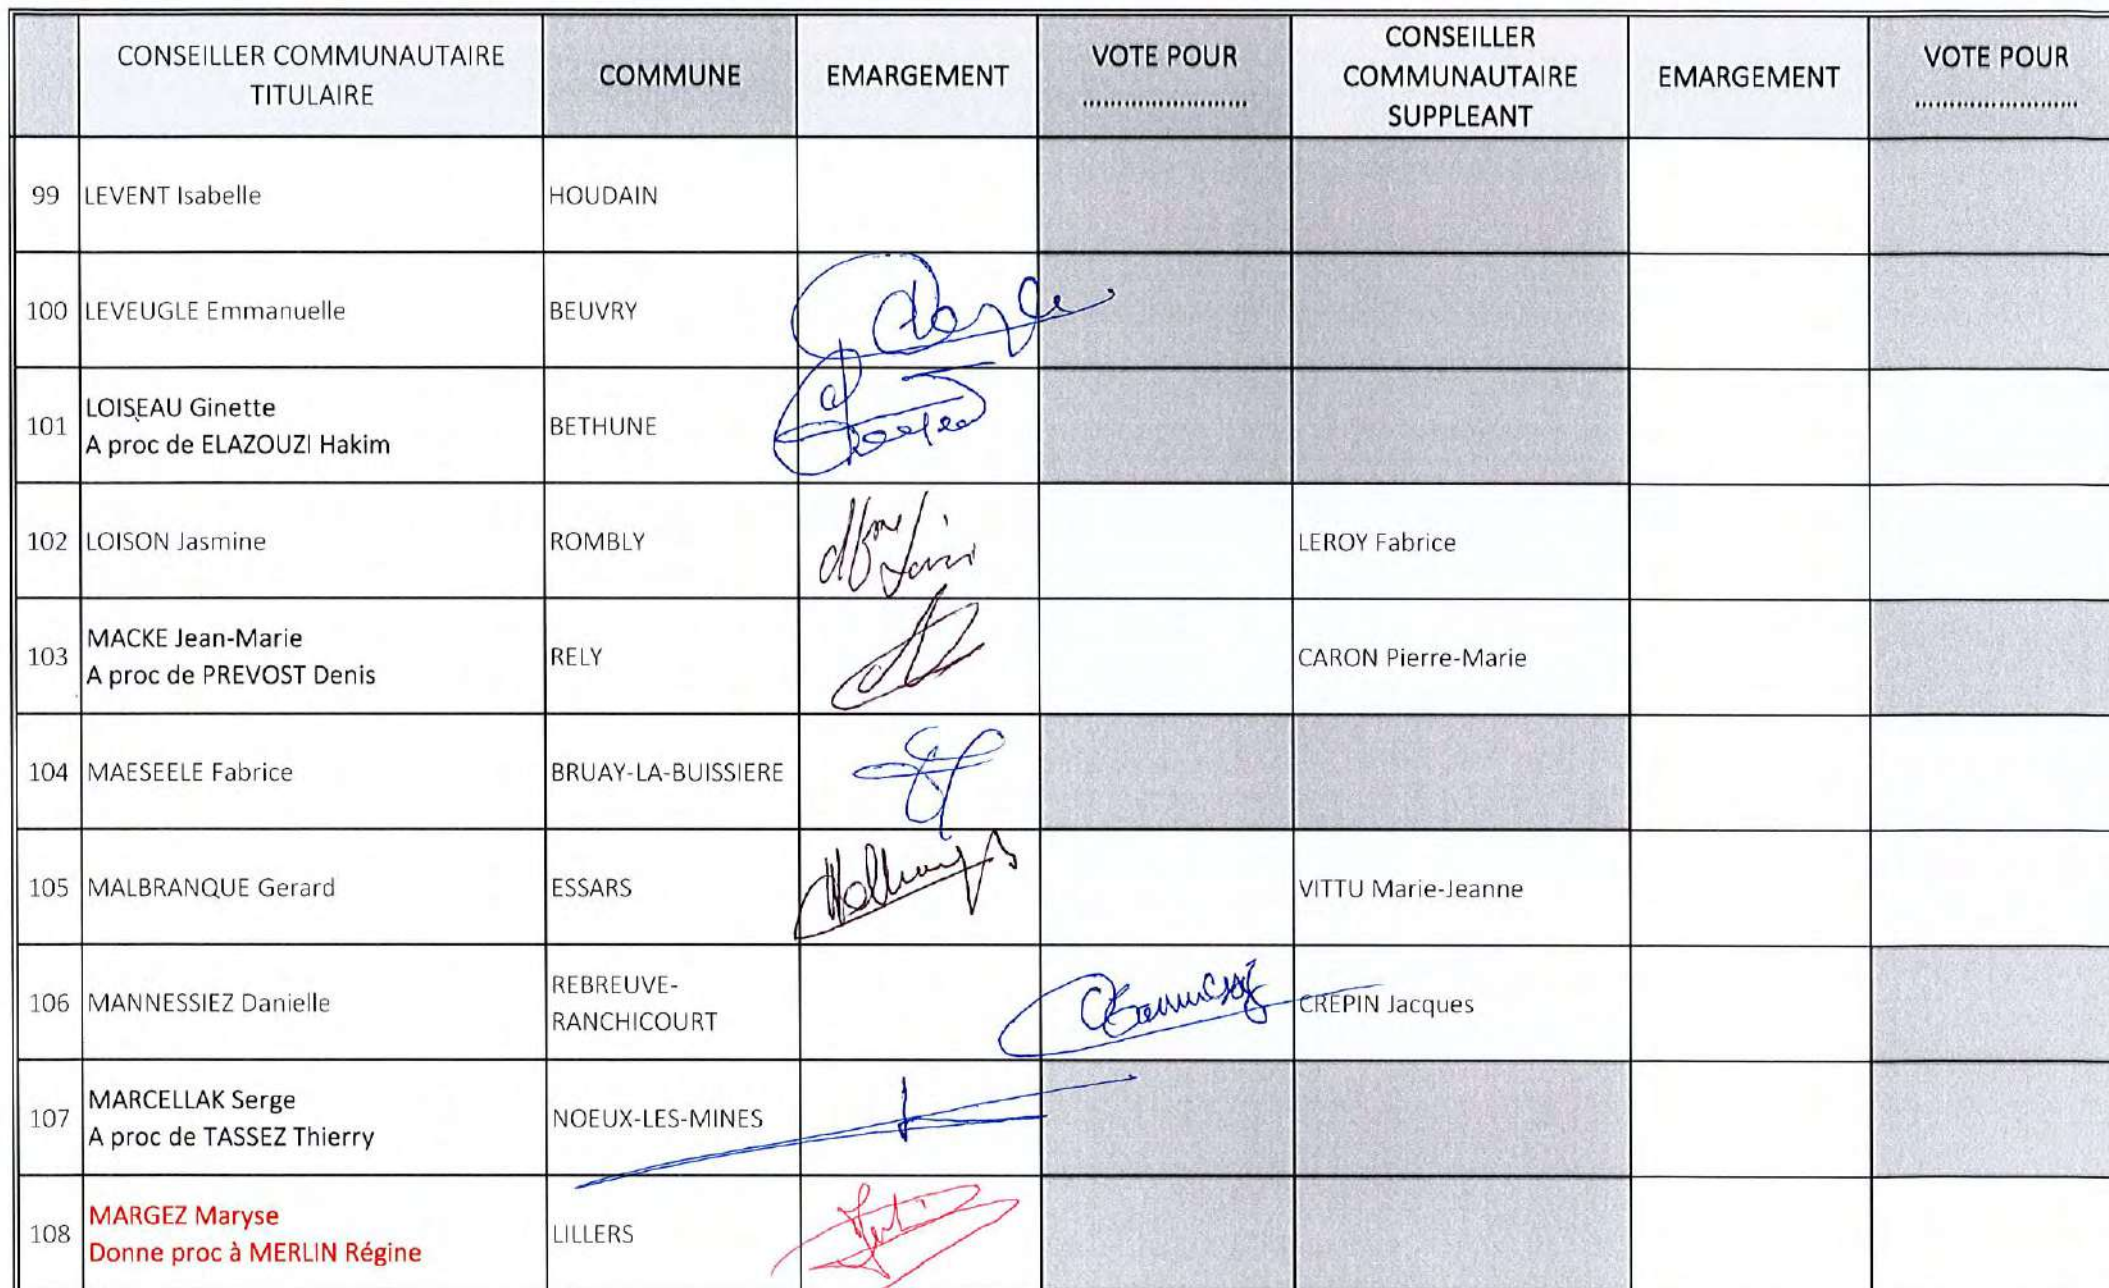 CONSEILLER COMMUNAUTAIRE
TITULAIRE
COMMUNE
EMARGEMENT
VOTE POUR
........................
CONSEILLER
COMMUNAUTAIRE
SUPPLEANT
EMARGEMENT
VOTE POUR
........................
99 LEVENT Isabelle HOUDAIN
100 LEVEUGLE Emmanuelle BEUVRY
101 LOISEAU Ginette
A proc de ELAZOUZI Hakim
BETHUNE
102 LOISON Jasmine ROMBLY LEROY Fabrice
103 MACKE Jean-Marie
A proc de PREVOST Denis
RELY CARON Pierre-Marie
104 MAESEELE Fabrice BRUAY-LA-BUISSIERE
105 MALBRANQUE Gerard ESSARS VITTU Marie-Jeanne
106 MANNESSIEZ Danielle
REBREUVE-
RANCHICOURT
CREPIN Jacques
107 MARCELLAK Serge
A proc de TASSEZ Thierry
NOEUX-LES-MINES
108 MARGEZ Maryse
Donne proc à MERLIN Régine
LILLERS